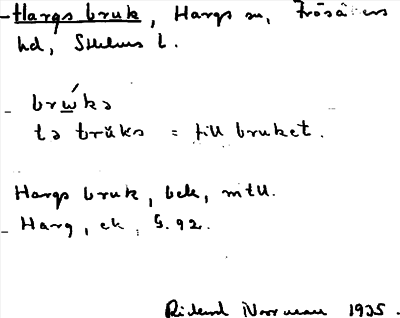 Hargs bruk, Hargs sn, Frösåkers
hd, Sthlms l.
brẃkə
tə brŭkə = till bruket.
Hargs bruk, bek, mtU.
Harg, ek, S. 92.
Rickard Norrman 1935.